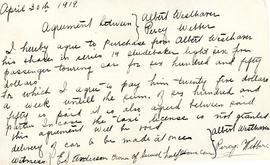 April 30th 1919.
Agreement between { Albert Westhaver
Percy Webber
I hereby agree to purchase from Albert Westhaver
his share in series 19 studebaker light six five
passenger touring car for six hundred and fifty
dollars
which I agree to pay him twenty five dollars
a week untill the sum of six hundred and
fifty is paid it is also agreed between said
parties in case the taxi license is not granted
this agreement will be void
delivery of car to be made at once
Albert Westhaver
Percy Webber
witness
Anderson owner of half share car